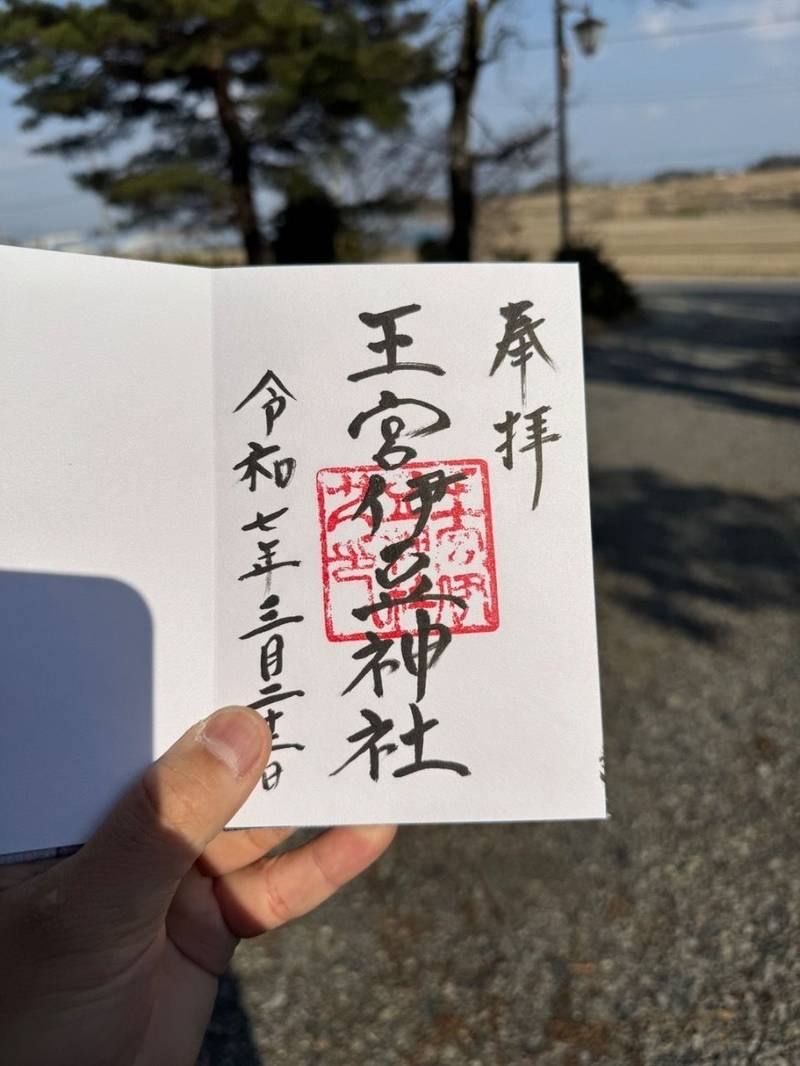 奉拝
王宮伊豆神社
令和七年三月二十二日